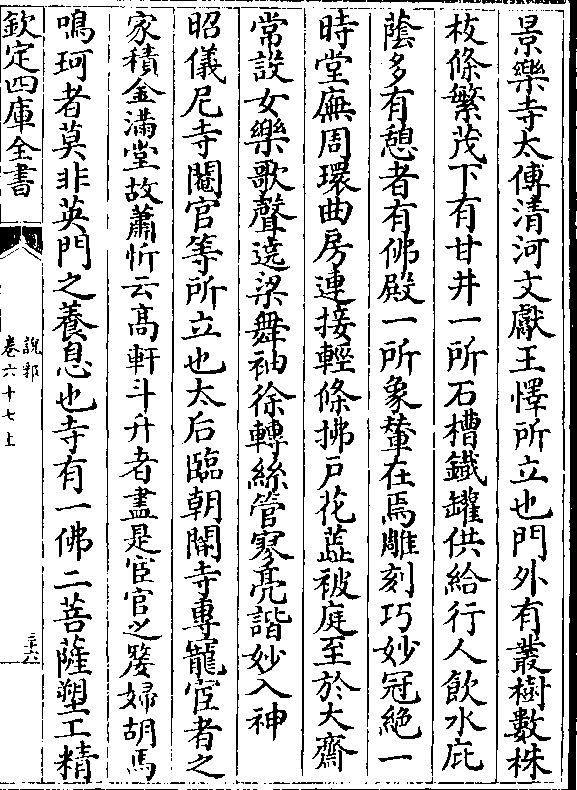 景樂寺太傅清河文獻王懌所立也門外有叢樹數株
枝條繁茂下有甘井一所石槽鐵罐供給行人飲水庇
蔭多有憩者有佛殿一所象輦在焉雕刻巧妙冠絶一
時堂廡周環曲房連接輕條拂戶花蘂被庭至於大齋
常設女樂歌聲遶梁舞袖徐轉絲管寥亮諧妙入神
昭儀尼寺閹官等所立也太后臨朝閽寺專寵宦者之
家積金滿堂故蕭忻云高軒斗升者盡是宦官之嫠婦胡馬
鳴珂者莫非英門之養息也寺有一佛二菩薩塑工精
欽定四庫全書
說郛
卷六十七上
三六